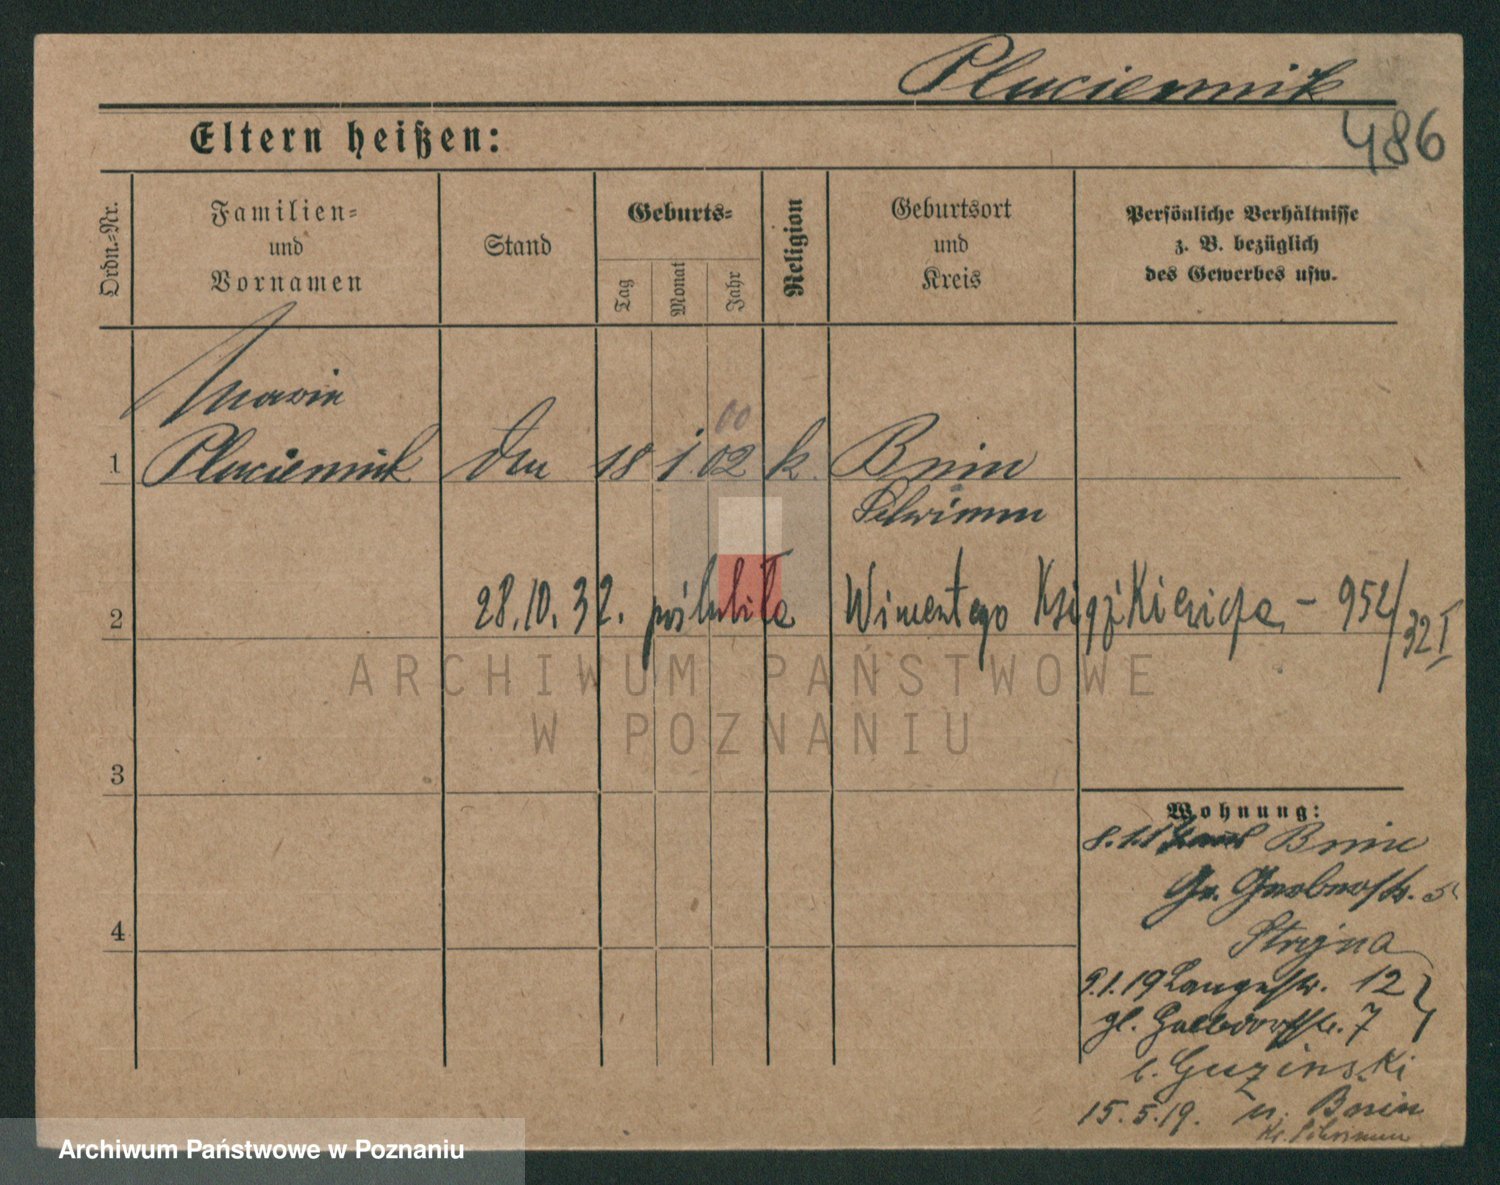 Pluciennik
486
Eltern heißen:
Ordn.-Nr.
Familien-
und
Vornamen
Stand
Geburts-
Tag
Monat
Jahr
Religion
Geburtsort
und
Kreis
Persönliche Verhältnisse
z. B. bezüglich
des Gewerbes usw.
Marie
00
1 Pluciennik 18 1. 02 k. Bnin
Schrimm
2 28.10.32. poślubiła Wincentego Książkiewicza - 952/32 I
ARCHIWUM PAŃSTWOWE
W POZNANIU
3
Wohnung:
Bnin
Gr. Gerberstr. 5
4
9.1.19 Langestr. 12
gl. Halbdorfstr. 7
b. Guzinski
15.5.19. n. Bnin
Kr. Schrimm
Archiwum Państwowe w Poznaniu